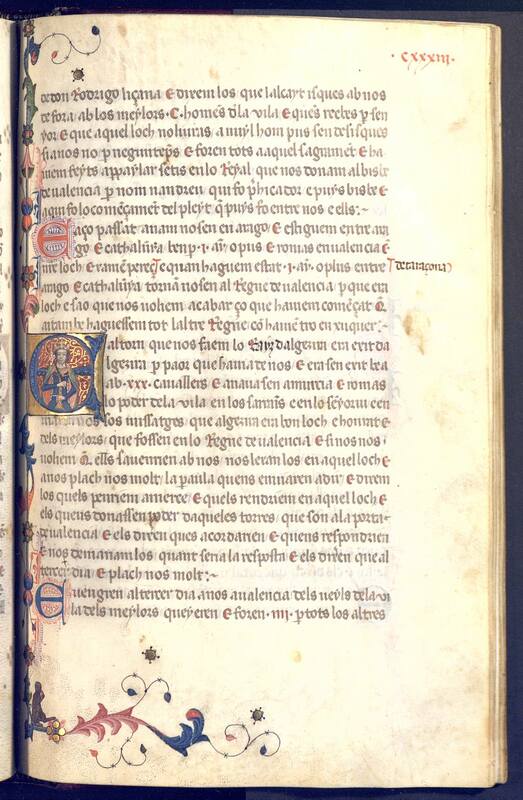 cxxxiii.
de don Rodrigo liçana E direm los que lalcayt isques ab nos
de fora ab los meylors · C · homens dela vila E quens reebes per sen
yor E que aquel loch no liuras a nuyl hom pus sen desisques
si a nos no per negun temps E foren tots a aquel sagrament E ha
uem feyts appaylar setis en lo Reyal que nos donam al bisbe
de valencia per nom nandreu qui fo prehicador e puys bisbe E
aqui fo lo començament del pleyt que puys fo entre nos e ells :~
E aço passat anam nosen en arago E estiguem entre ara
go E cathalunya ben per · i · any o pus E romas en valencia E
nre loch E ramen perec T E quan haguem estat · i · any o plus entre
de taraçona
arago E cathalunya tornam nosen al Regne de valencia per que era
loch e sao que nos uoliem acabar ço que hauiem començat Q
atambe haguessem tot laltre Regne com hauiem tro en xuquer :~
E al torn que nos fuem lo Seny dalgezira era exit da
lgezira per paor que hauia de nos E era sen exit be a
ab · xxx · cauallers E anaua sen a murcia E romas
lo poder dela vila en los sarrains e en lo senyoriu e en
los missatges que algezira era bon loch e honrat E
dels meylors que fossen en lo Regne de valencia E si nos nos
uoliem Q ells sauenrien ab nos nos leran los en aquel loch E
a nos plach nos molt la paraula quens enuiaren a dir E direm
los quels penriem a merce E quels rendriem en aquel loch E
els quens donassen poder daqueles torres que son a la porta
de valencia E els diren ques acordarien E quens respondrien
E nos demanam los quant seria la resposta E els diren que al
tercer dia E plach nos molt :~
E uengren al tercer dia a nos a valencia dels ueyls dela vi
la dels meylors que y eren E foren · iiii · per tots los altres